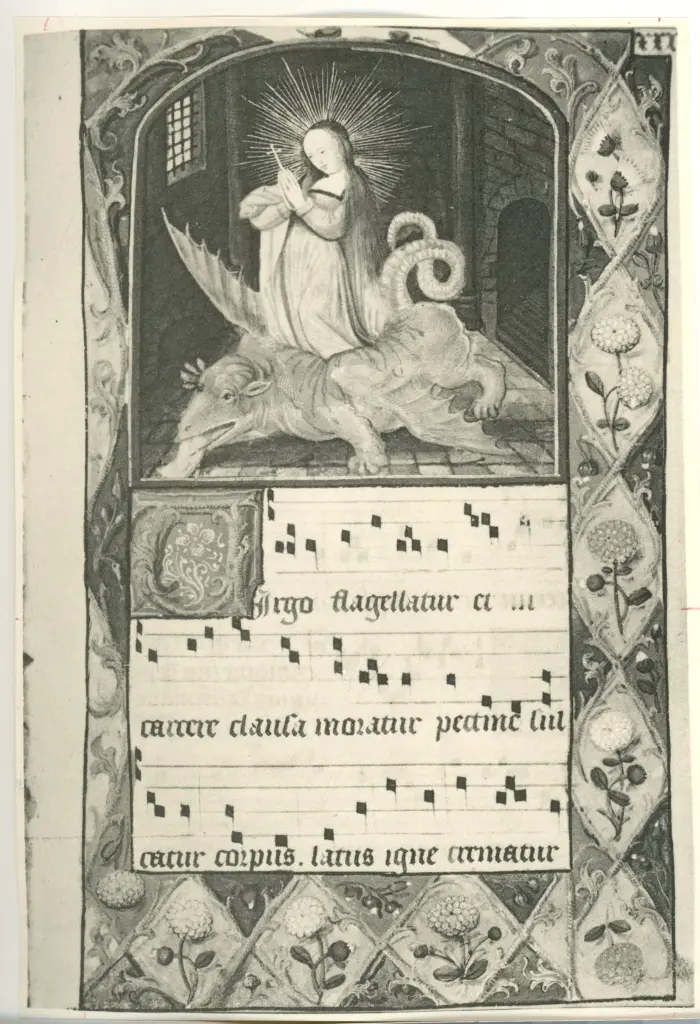 Virgo flagellatur et in
carcere clausa moratur pectine sul
catur corpus. latus igne crematur